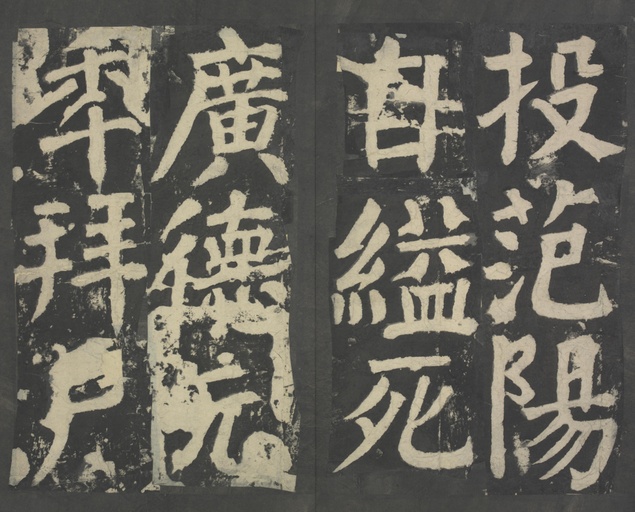 投范陽
自縊死
廣德元
年拜户